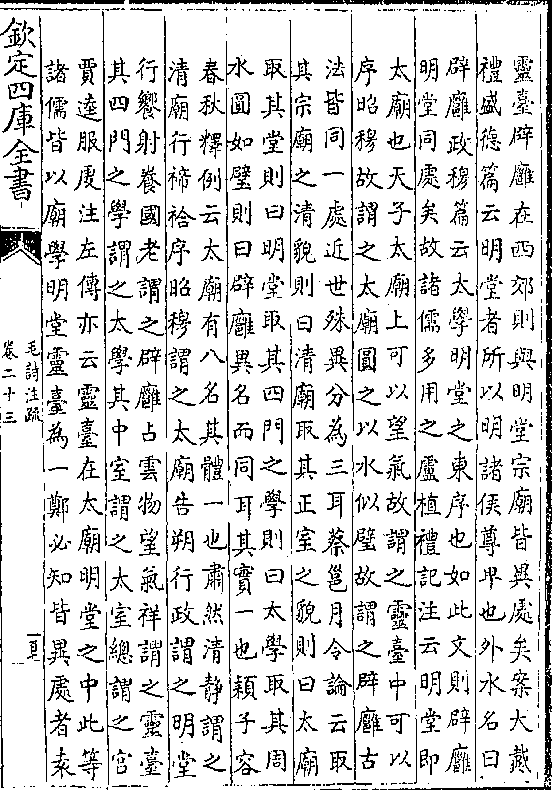 靈臺辟廱在西郊則與明堂宗廟皆異處矣案大戴
禮盛德篇云明堂者所以明諸侯尊卑也外水名曰
辟廱政穆篇云太學明堂之東序也如此文則辟廱
明堂同處矣故諸儒多用之盧植禮記注云明堂即
太廟也天子太廟上可以望氣故謂之靈臺中可以
序昭穆故謂之太廟圓之以水似璧故謂之辟廱古
法皆同一處近世殊異分為三耳蔡邕月令論云取
其宗廟之清貌則曰清廟取其正室之貌則曰太廟
取其堂則曰明堂取其四門之學則曰太學取其周
水圓如璧則曰辟廱異名而同耳其實一也頴子容
春秋釋例云太廟有八名其體一也肅然清静謂之
清廟行禘祫序昭穆謂之太廟告朔行政謂之明堂
行饗射養國老謂之辟廱占雲物望氣祥謂之靈臺
其四門之學謂之太學其中室謂之太室總謂之宫
賈逵服䖍注左傳亦云靈臺在太廟明堂之中此等
諸儒皆以廟學明堂靈臺為一鄭必知皆異處者袁
欽定四庫全書
毛詩注疏
卷二十三